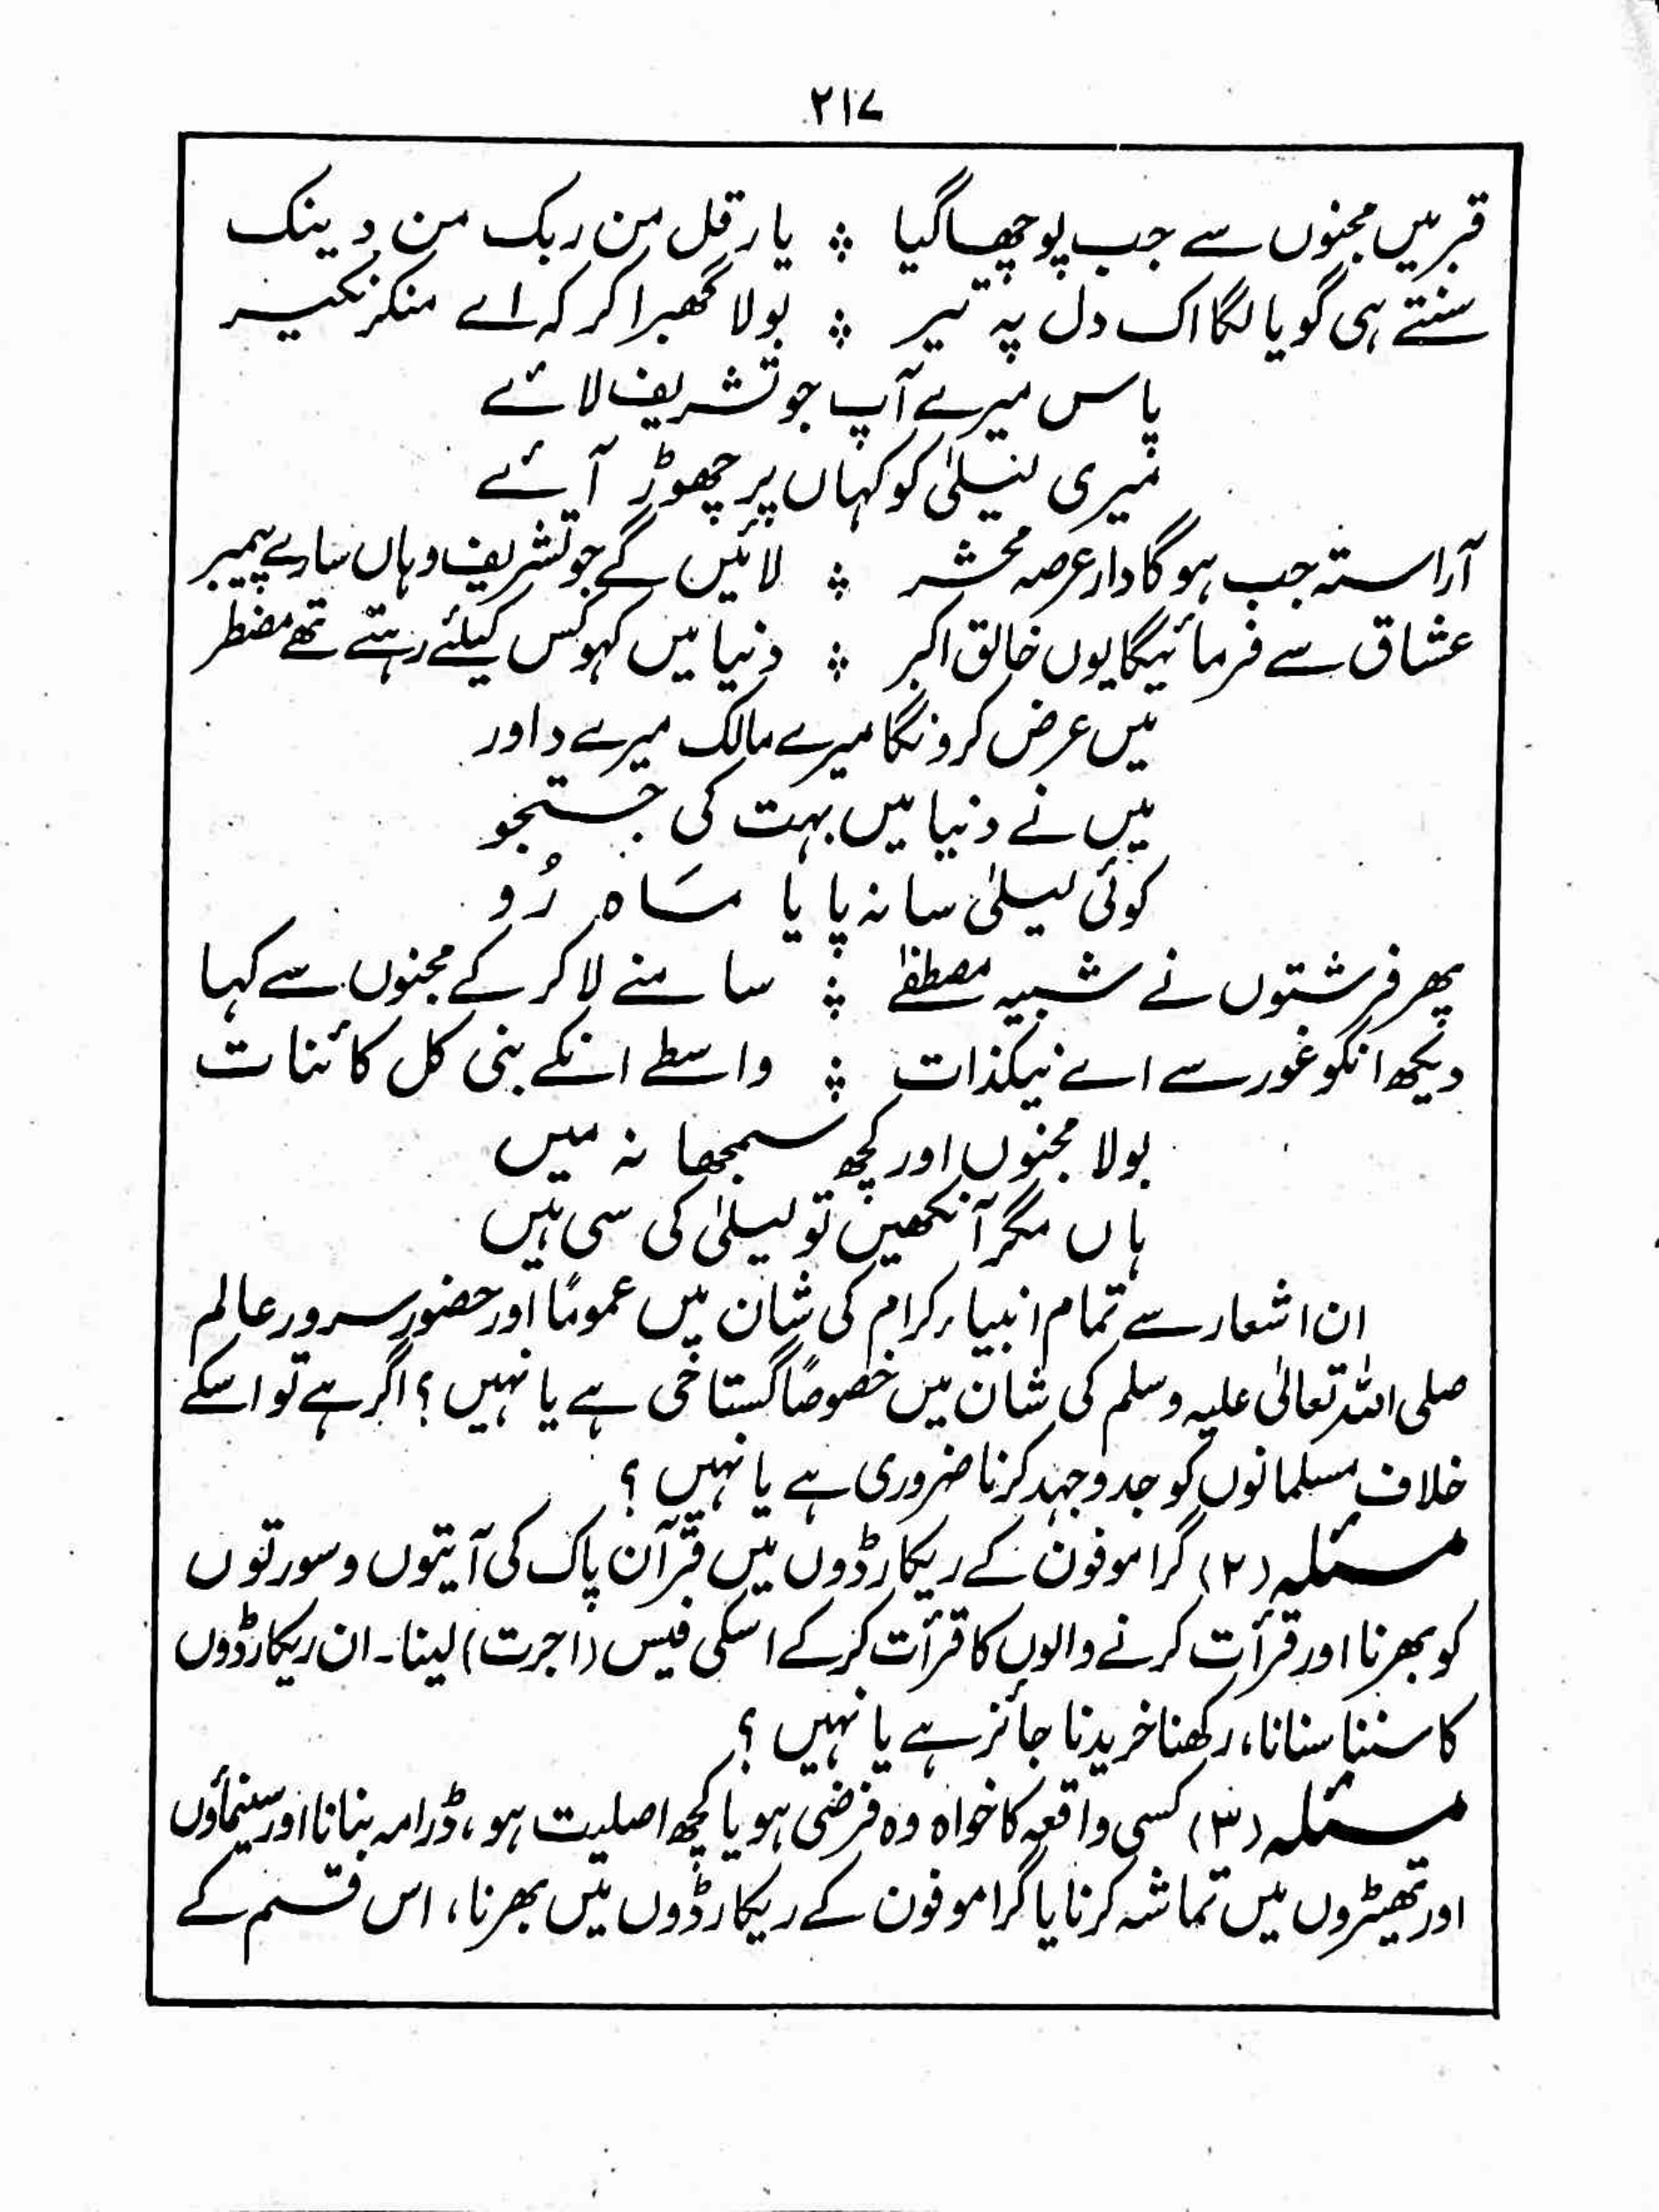 ۲۱۷
قبر میں مجنوں سے جب پوچھا گیا ؞ یار قل من ربک من دینک
سنتے ہی گویا لگا اک دل پہ تیر ؞ بولا گھبرا کر کہ اے منکر نکیر
پاس میرے آپ جو تشریف لائے
میری لیلیٰ کو کہاں پر چھوڑ آئے
آراستہ جب ہوگا دار عرصہ محشر ؞ لائیں گے جو تشریف وہاں سارے پیمبر
عشاق سے فرمائیگا یوں خالق اکبر ؞ دنیا میں کہو کس کیلئے رہتے تھے مضطر
میں عرض کرونگا میرے مالک میرے داور
میں نے دنیا میں بہت کی جستجو
کوئی لیلیٰ سا نہ پایا مَاہ رُو
پھر فرشتوں نے شبیہ مصطفےٰ ؞ سامنے لا کر کے مجنوں سے کہا
دیکھ انکو غور سے اے نیکذات ؞ واسطے انکے بنی کل کائنات
بولا مجنوں اور کچھ سمجھا نہ میں
ہاں مگر آنکھیں تو لیلیٰ کی سی ہیں
ان اشعار سے تمام انبیاء کرام کی شان میں عموماً اور حضور سرور عالم
صلی اللہ تعالیٰ علیہ وسلم کی شان میں خصوصاً گستاخی ہے یا نہیں ؟ اگر ہے تو اسکے
خلاف مسلمانوں کو جد و جہد کرنا ضروری ہے یا نہیں ؟
مسئلہ (۲) گراموفون کے ریکارڈوں میں قرآن پاک کی آیتوں و سورتوں
کو بھرنا اور قرأت کرنے والوں کا قرأت کر کے اسکی فیس (اجرت) لینا۔ ان ریکارڈوں
کا سننا سنانا، رکھنا خریدنا جائز ہے یا نہیں ؟
مسئلہ (۳) کسی واقعہ کا خواہ وہ فرضی ہو یا کچھ اصلیت ہو، ڈرامہ بنانا اور سینماؤں
اور تھیٹروں میں تماشہ کرنا یا گراموفون کے ریکارڈوں میں بھرنا، اس قسم کے